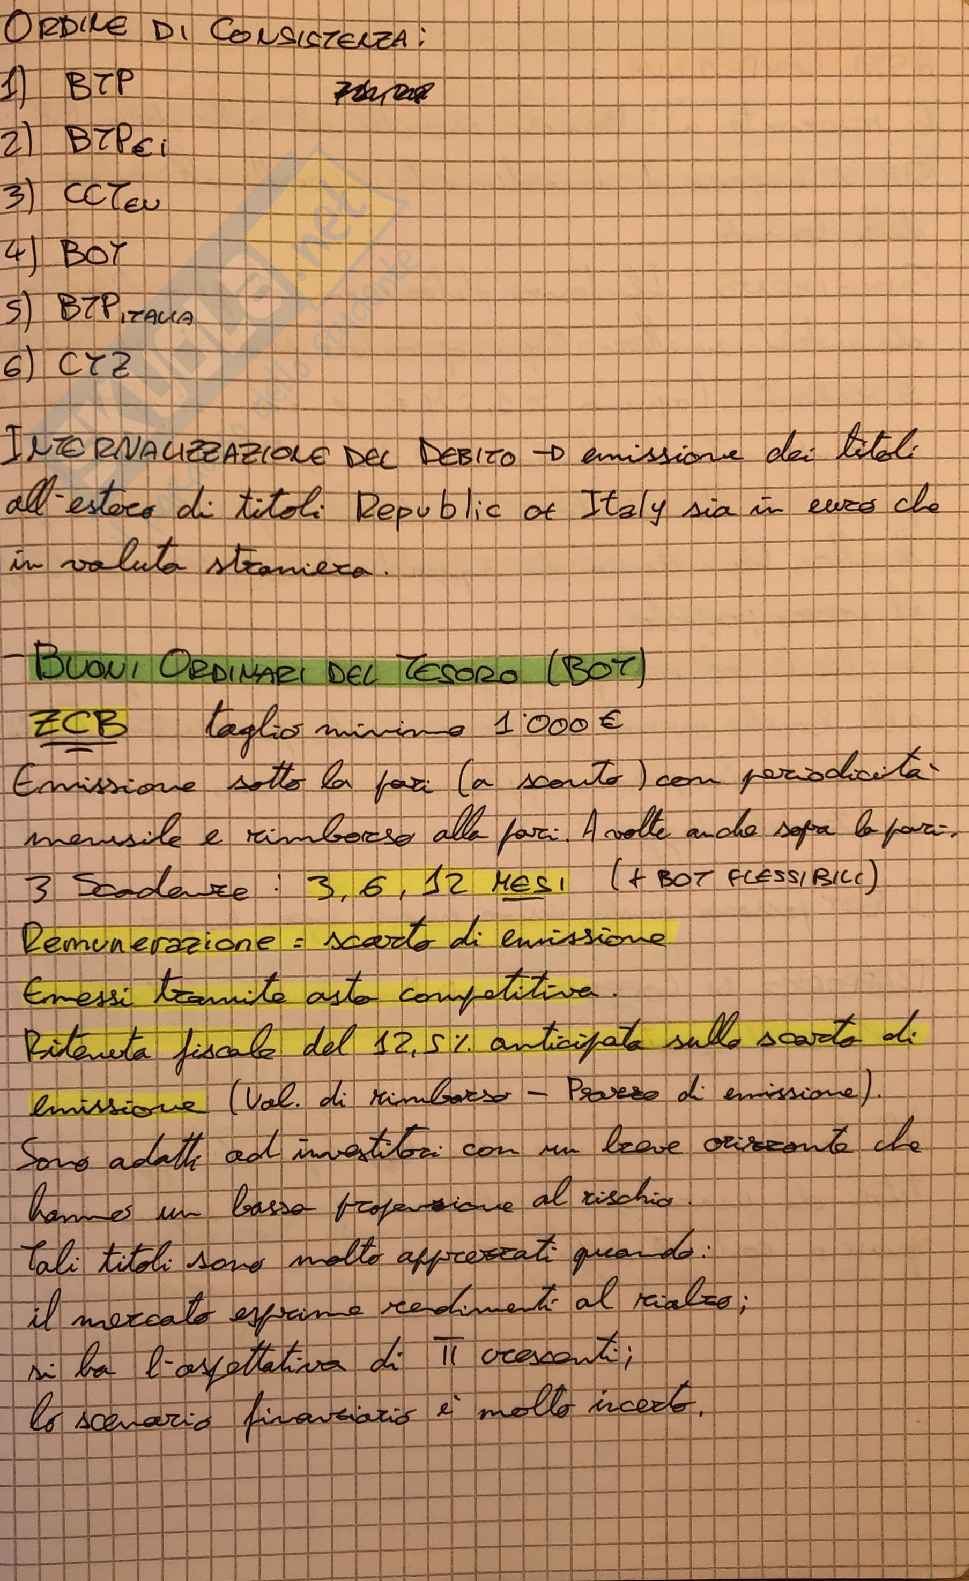 ORDINE DI CONSISTENZA:
1) BTP
2) BTP€i
3) CCTeu
4) BOT
5) BTPITALIA
6) CTZ
INTERNALIZZAZIONE DEL DEBITO → emissione dei titoli
all'estero di titoli Republic of Italy sia in euro che
in valuta straniera.
- BUONI ORDINARI DEL TESORO (BOT)
ZCB taglio minimo 1'000€
Emissione sotto la pari (a sconto) con periodicità
mensile e rimborso alla pari. A volte anche sopra la pari.
3 Scadenze: 3, 6, 12 MESI (+ BOT FLESSIBILI)
Remunerazione = scarto di emissione
Emessi tramite asta competitiva.
Ritenuta fiscale del 12,5% anticipata sullo scarto di
emissione (Val. di rimborso - Prezzo di emissione).
Sono adatti ad investitori con un breve orizzonte che
hanno un basso propensione al rischio.
Tali titoli sono molto apprezzati quando:
il mercato esprime rendimenti al rialzo;
si ha l'aspettativa di π crescenti;
lo scenario finanziario è molto incerto.
SKUOLA.net